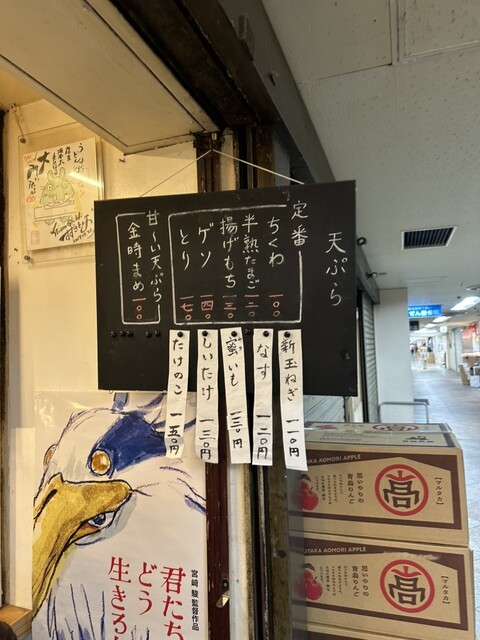 天ぷら
定番
ちくわ 一〇〇
半熟たまご 一二〇
揚げもち 一三〇
ゲソ 一四〇
とり 一七〇
甘〜い天ぷら
金時まめ 一〇〇
新玉ねぎ 一一〇円
なす 一二〇円
蜜いも 一三〇円
しいたけ 一三〇円
たけのこ 一五〇円
宮﨑 駿 監督作品
君たち
どう
生きる
TAKA AOMORI APPLE
思いやりの
青森りんご
高
【マルタカ】
UTAKA AOMORI APPLE
思いやりの
青森りんご
高
【マルタカ】